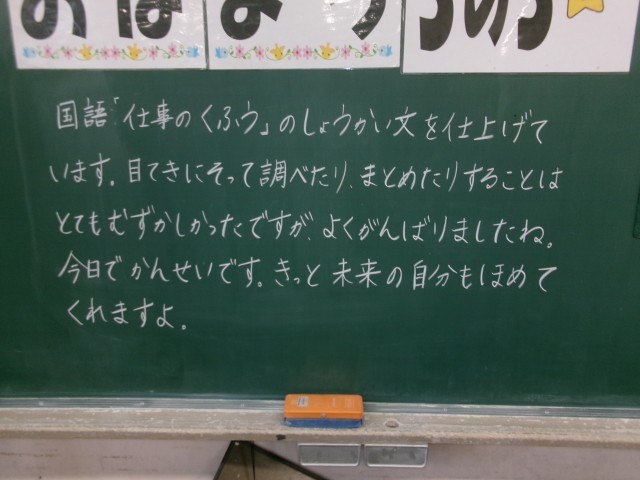 国語「仕事のくふう」のしょうかい文を仕上げて
います。目てきにそって調べたり、まとめたりすることは
とてもむずかしかったですが、よくがんばりましたね。
今日でかんせいです。きっと未来の自分もほめて
くれますよ。